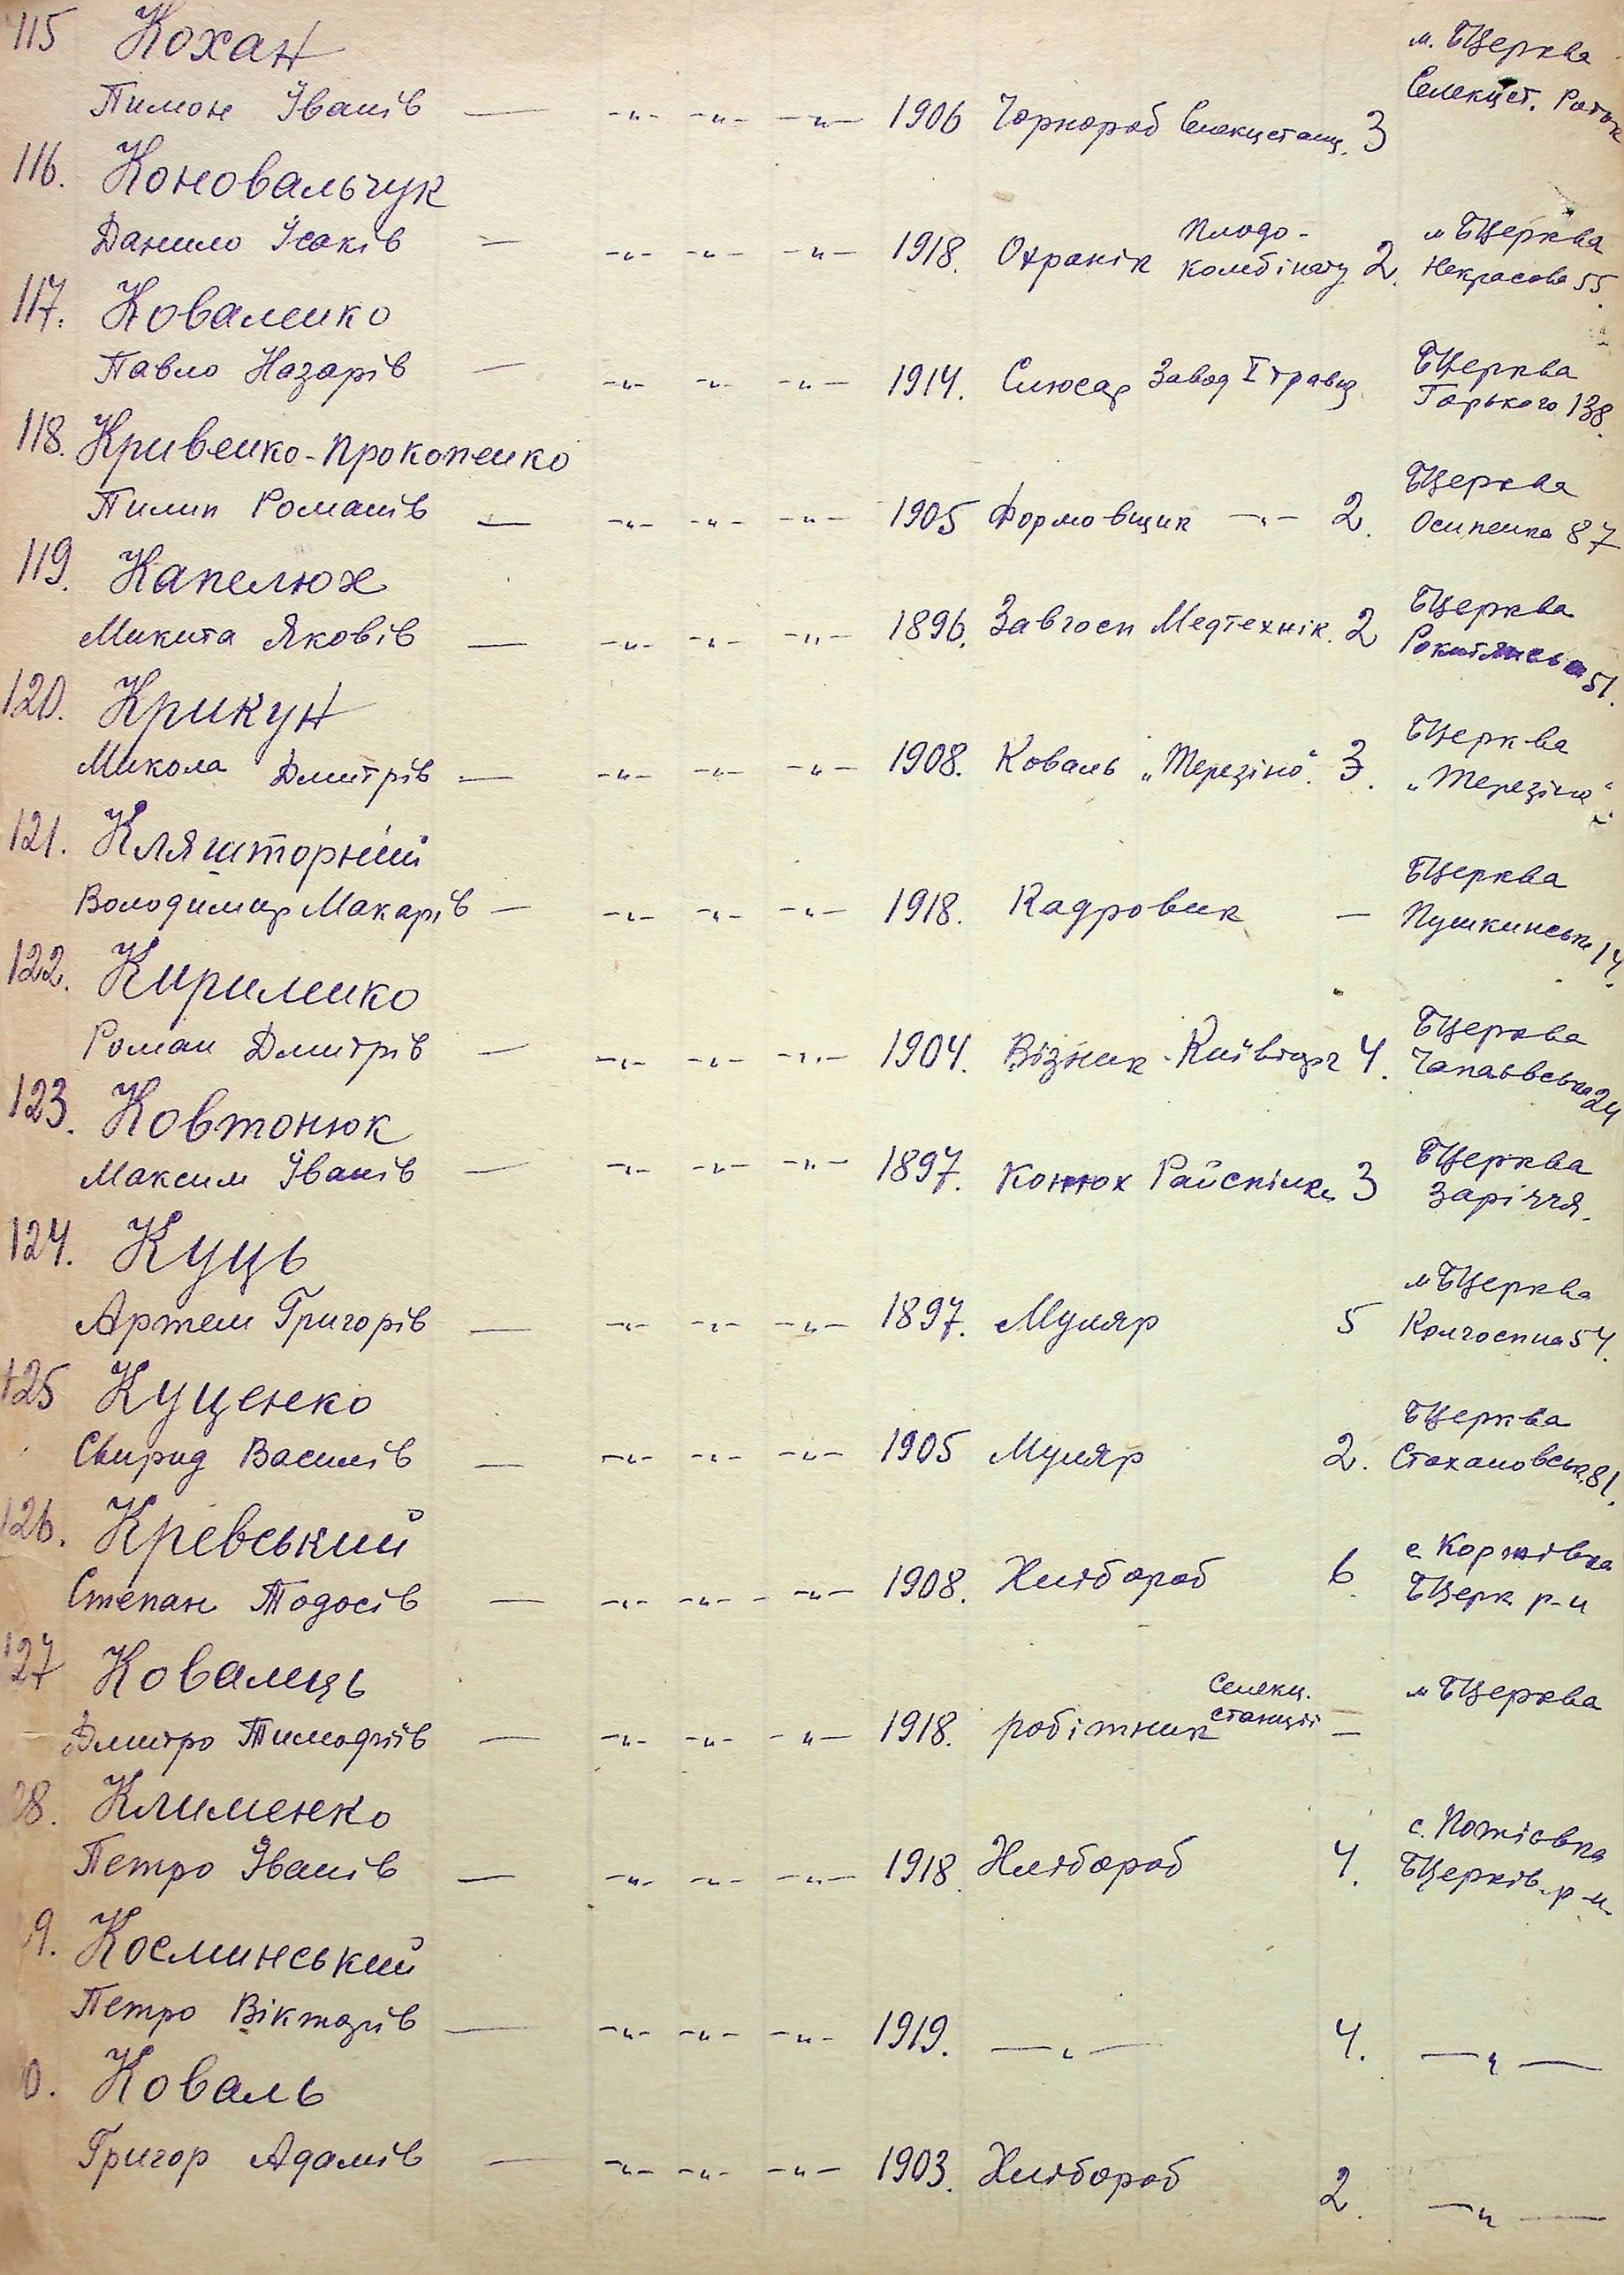 115 Кохан
м. БЦерква
Пимон Іванів — -"- -"- -"- 1906 Чорнороб Селекцстанц. 3 Селекцст. Роток
116. Коновальчук
Данило Ісаків — -"- -"- -"- 1918. Охранік Плодо-комбінату 2. м БЦерква Некрасова 55.
117. Коваленко
Павло Назарів — -"- -"- -"- 1914. Слюсар Завод І травц. БЦерква Горького 138.
118. Кривенко-Прокопенко
Пилип Романів — -"- -"- -"- 1905 Формовщик -"- 2. БЦерква Осипенка 87
119. Капелюх
Микита Яковів — -"- -"- -"- 1896. Завгосп Медтехнік. 2 БЦерква Рокитянська 51.
120. Крикун
Микола Дмитрів — -"- -"- -"- 1908. Коваль „Терезіно". 3. БЦерква „Терезіно"
121. Кляшторний
Володимир Макарів — -"- -"- -"- 1918. Кадровик — БЦерква Пушкинська 14.
122. Кириленко
Роман Дмитрів — -"- -"- -"- 1904. Візник Київторг 4. БЦерква Чапаєвська 24
123. Ковтонюк
Максим Іванів — -"- -"- -"- 1897. Конюх Райспілки 3 БЦерква Заріччя.
124. Куць
Артем Григорів — -"- -"- -"- 1897. Муляр 5 м БЦерква Колгоспна 54.
125 Куценко
Свирид Василів — -"- -"- -"- 1905 Муляр 2. БЦерква Стахановськ. 81.
126. Кревський
Степан Тодосів — -"- -"- -"- 1908. Хлібороб 6 с. Коржівка БЦерк р-н
127 Ковалець
Дмитро Тимофіїв — -"- -"- -"- 1918. робітник Селекц. станції — м БЦерква
28. Клименко
Петро Іванів — -"- -"- -"- 1918. Хлібороб 4. с. БЦерків. р-н.
9. Косминський
Петро Вікторів — -"- -"- -"- 1919. —"— 4. —"—
0. Коваль
Григор Адамів — -"- -"- -"- 1903. Хлібороб 2. —"—